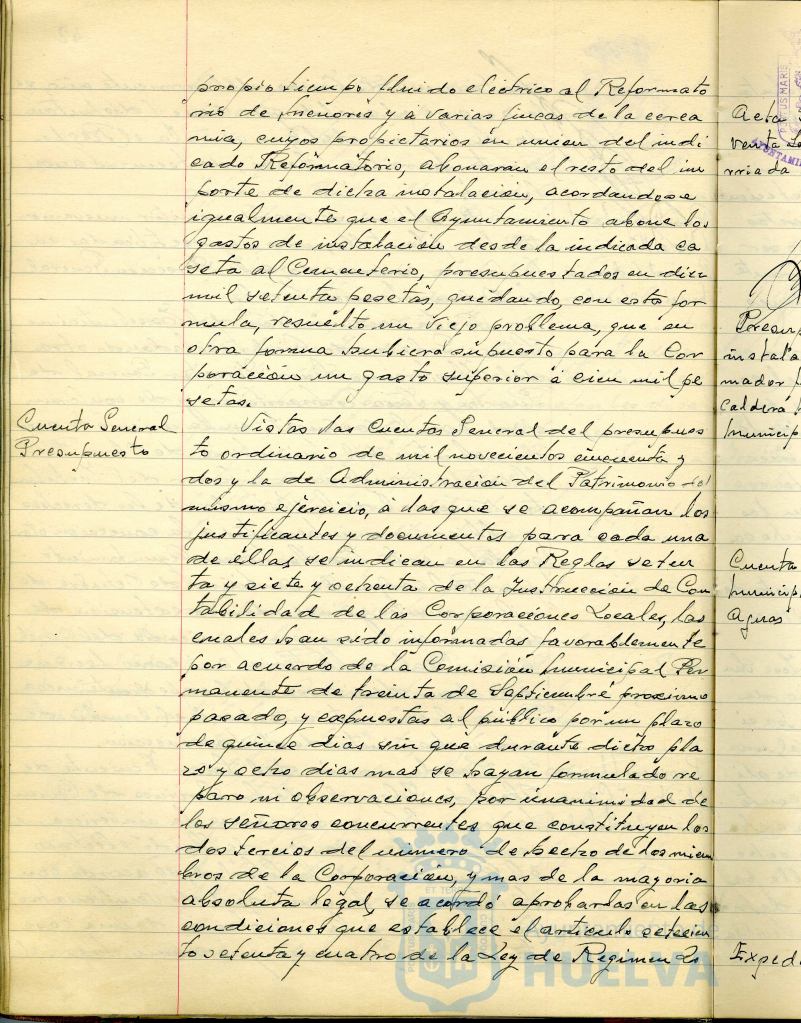 propio tiempo fluido eléctrico al Reformato
rio de menores y a varias fincas de la cerca
nia, cuyos propietarios en union del indi
cado Reformatorio, abonaran el resto del im
porte de dicha instalación, acordandose
igualmente que el Ayuntamiento abone los
gastos de instalación desde la indicada ca
seta al Cementerio, presupuestados en diez
mil setenta pesetas, quedando, con esta for
mula, resuelto un viejo problema, que en
otra forma hubiera supuesto para la Cor
poración un gasto superior a cien mil pe
setas.
Cuenta General
Presupuesto
Vistas las Cuentas General del presupues
to ordinario de mil novecientos cincuenta y
dos y la de Administración del Patrimonio del
mismo ejercicio, a las que se acompañan los
justificantes y documentos para cada una
de éllas se indican en las Reglas seten
ta y siete y ochenta de la Instrucción de Con
tabilidad de las Corporaciones Locales, las
cuales han sido informadas favorablemente
por acuerdo de la Comisión municipal Per
manente de treinta de Septiembre proximo
pasado, y expuestas al público por un plazo
de quince dias sin que durante dicho pla
zo y ocho dias mas se hayan formulado re
paro ni observaciones, por unanimidad de
los señores concurrentes que constituyen los
dos tercios del numero de hecho de los miem
bros de la Corporación, y mas de la mayoria
absoluta legal, se acordó aprobarlas en las
condiciones que establece el articulo setecien
to setenta y cuatro de la Ley de Regimen Lo
Acta
venta
rriada
Presup
instala
mador
caldera
municip
Cuenta
municip
Aguas
Exped
HUELVA